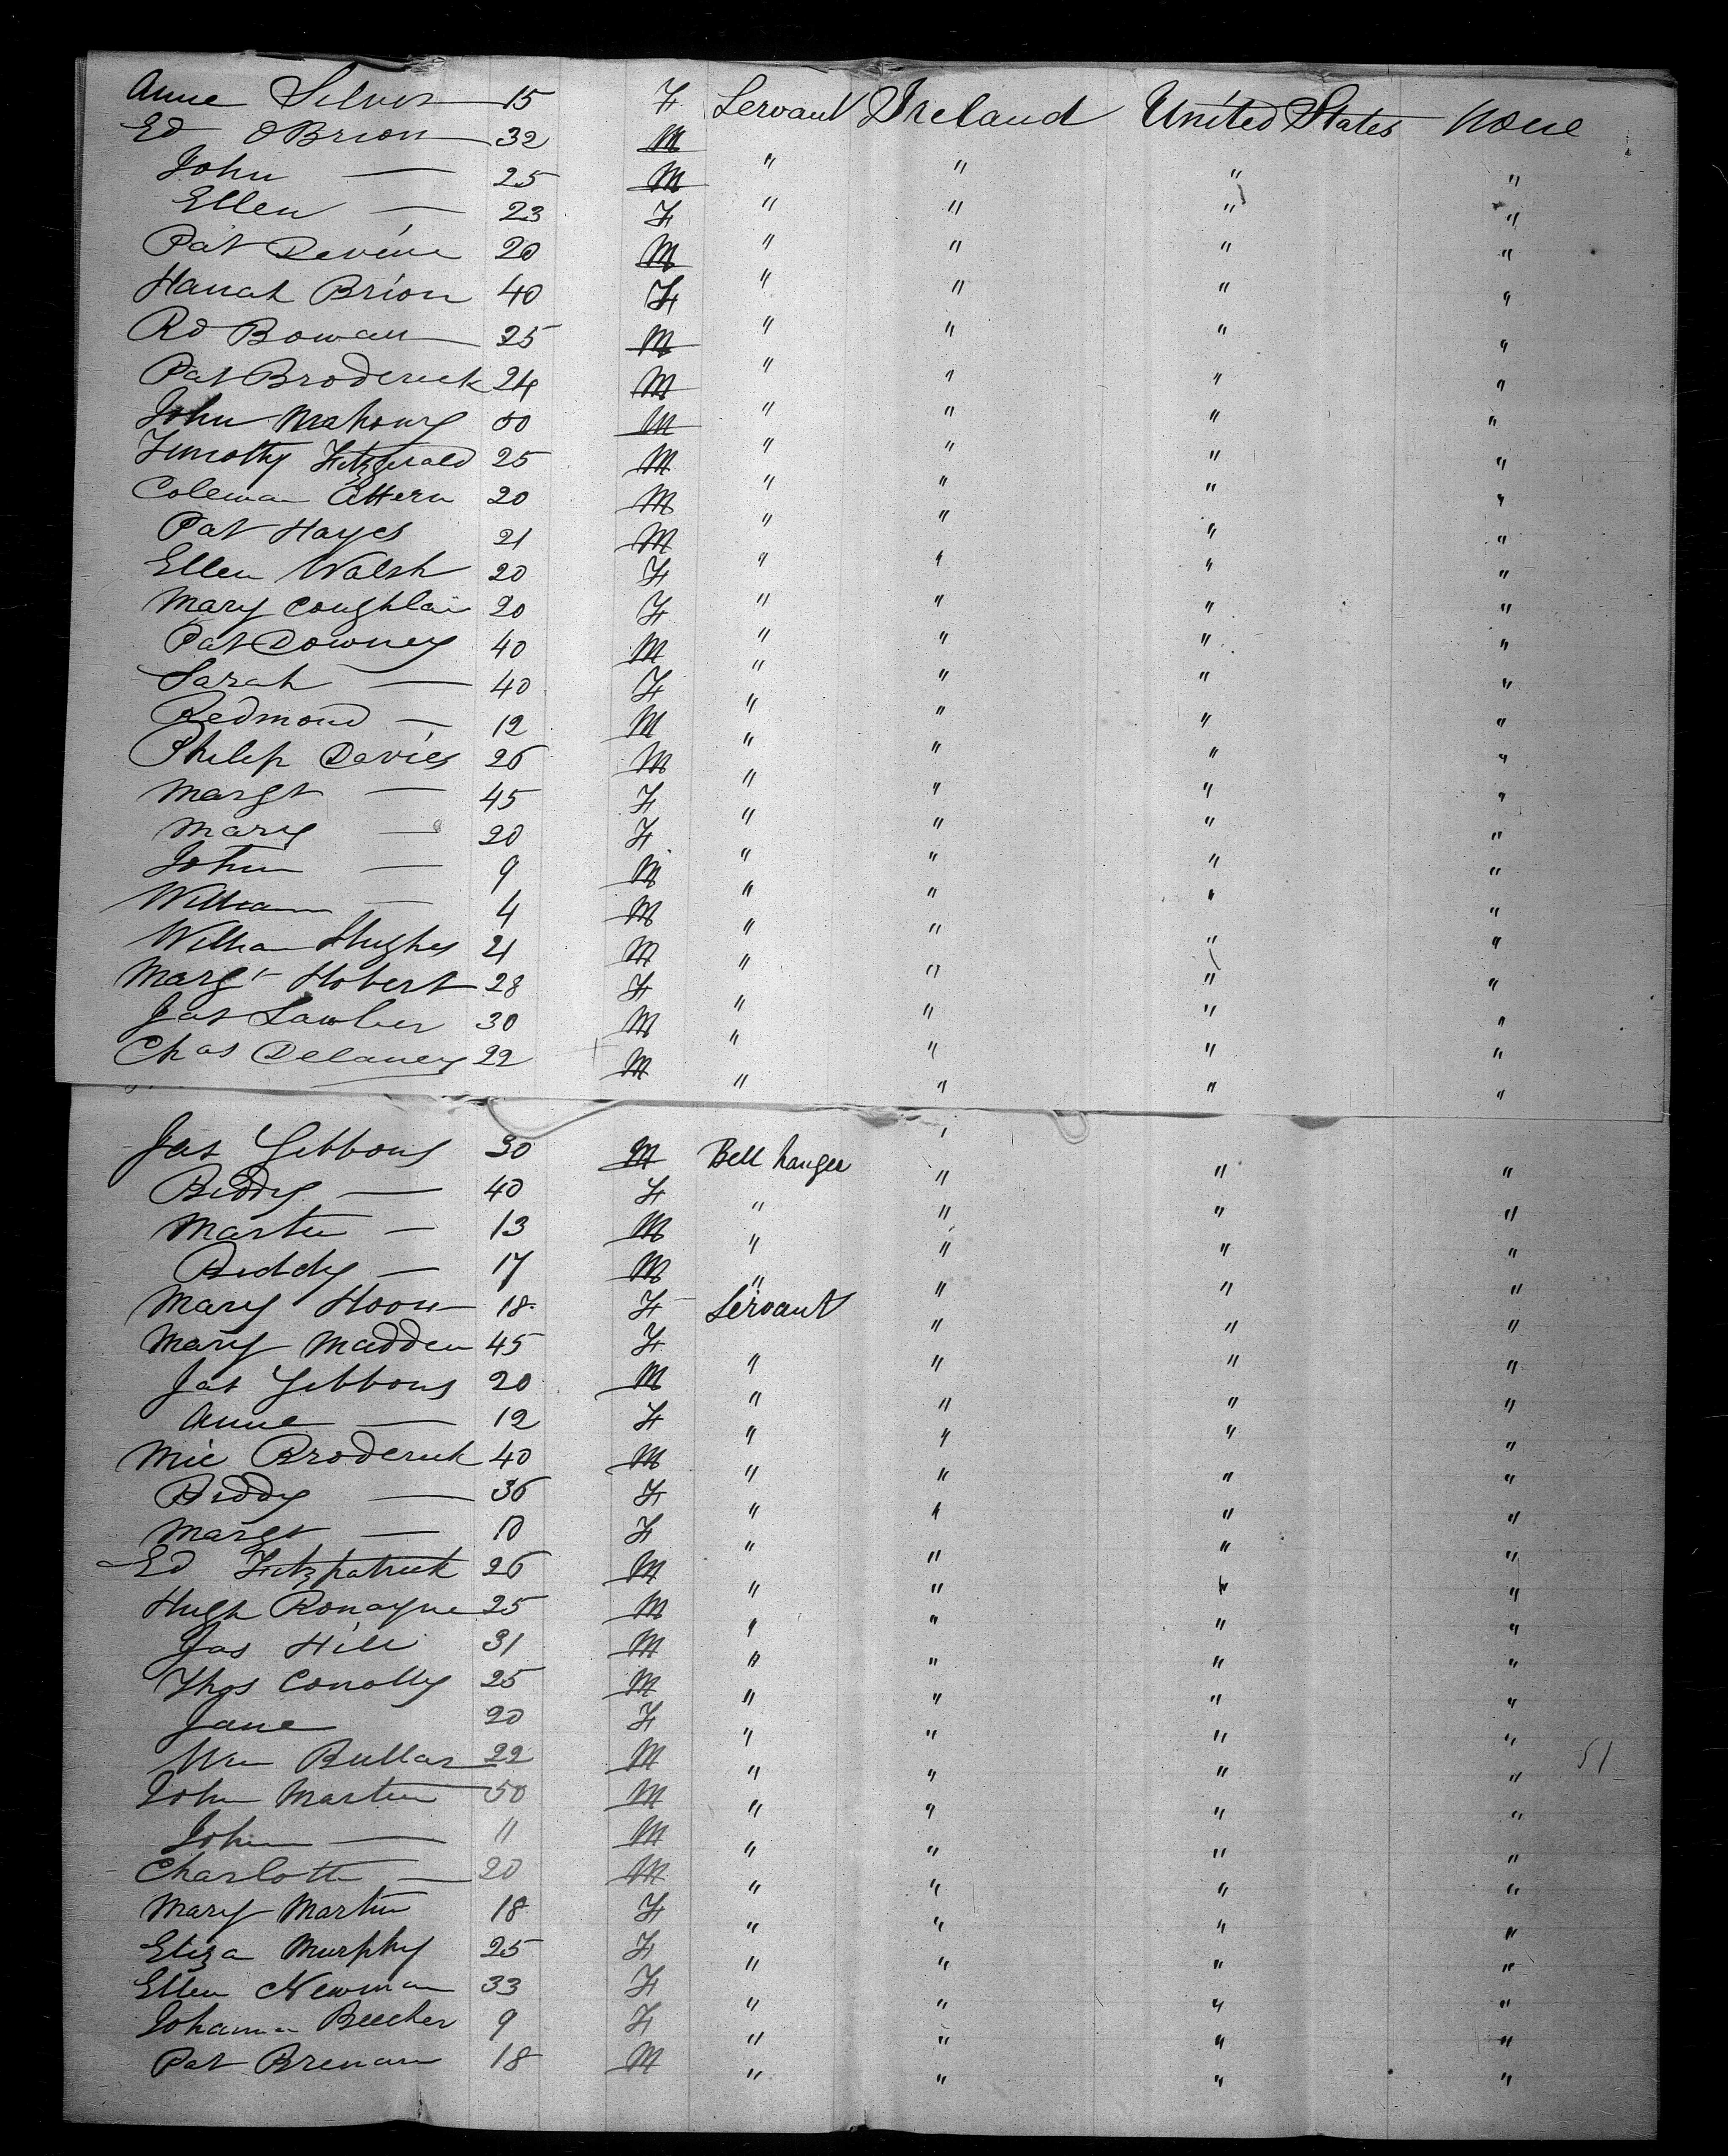 Anne Silver 15 F Servant Ireland United States None
Ed OBrion 32 M " " " "
John — 25 M " " " "
Ellen — 23 F " " " "
Pat Devine 20 M " " " "
Hanah Brion 40 F " " " "
Rd Bowan 25 M " " " "
Pat Broderick 24 M " " " "
John Mahony 50 M " " " "
Timothy Fitzgerald 25 M " " " "
Coleman 20 M " " " "
Pat Hayes 21 M " " " "
Ellen Walsh 20 F " " " "
Mary Coughlan 20 F " " " "
Pat Downey 40 M " " " "
Sarah — 40 F " " " "
Redmond — 12 M " " " "
Philip Davies 26 M " " " "
Margt — 45 F " " " "
Mary — 20 F " " " "
John — 9 M " " " "
William — 4 M " " " "
William Hughes 21 M " " " "
Margt Hobert 28 F " " " "
Jas Lawler 30 M " " " "
Chas Delaney 22 M " " " "
Jas Gibbons 30 M Bell hanger " " "
Biddy — 40 F " " " "
Martin — 13 M " " " "
Biddy — 17 M " " " "
Mary 18 F Servant " " "
Mary Madden 45 F " " " "
Jas Gibbons 20 M " " " "
Anne — 12 F " " " "
Mic Broderick 40 M " " " "
Biddy — 36 F " " " "
Margt — 10 F " " " "
Ed Fitzpatrick 26 M " " " "
Hugh Ronayne 25 M " " " "
Jas Hill 31 M " " " "
Thos Conolly 25 M " " " "
Jane 20 F " " " "
Wm Bullar 22 M " " " " 51
John Martin 50 M " " " "
John — 11 M " " " "
Charlotte — 20 M " " " "
Mary Martin 18 F " " " "
Eliza Murphy 25 F " " " "
Ellen Newman 33 F " " " "
Johanna Beecher 9 F " " " "
Pat Brenan 18 M " " " "